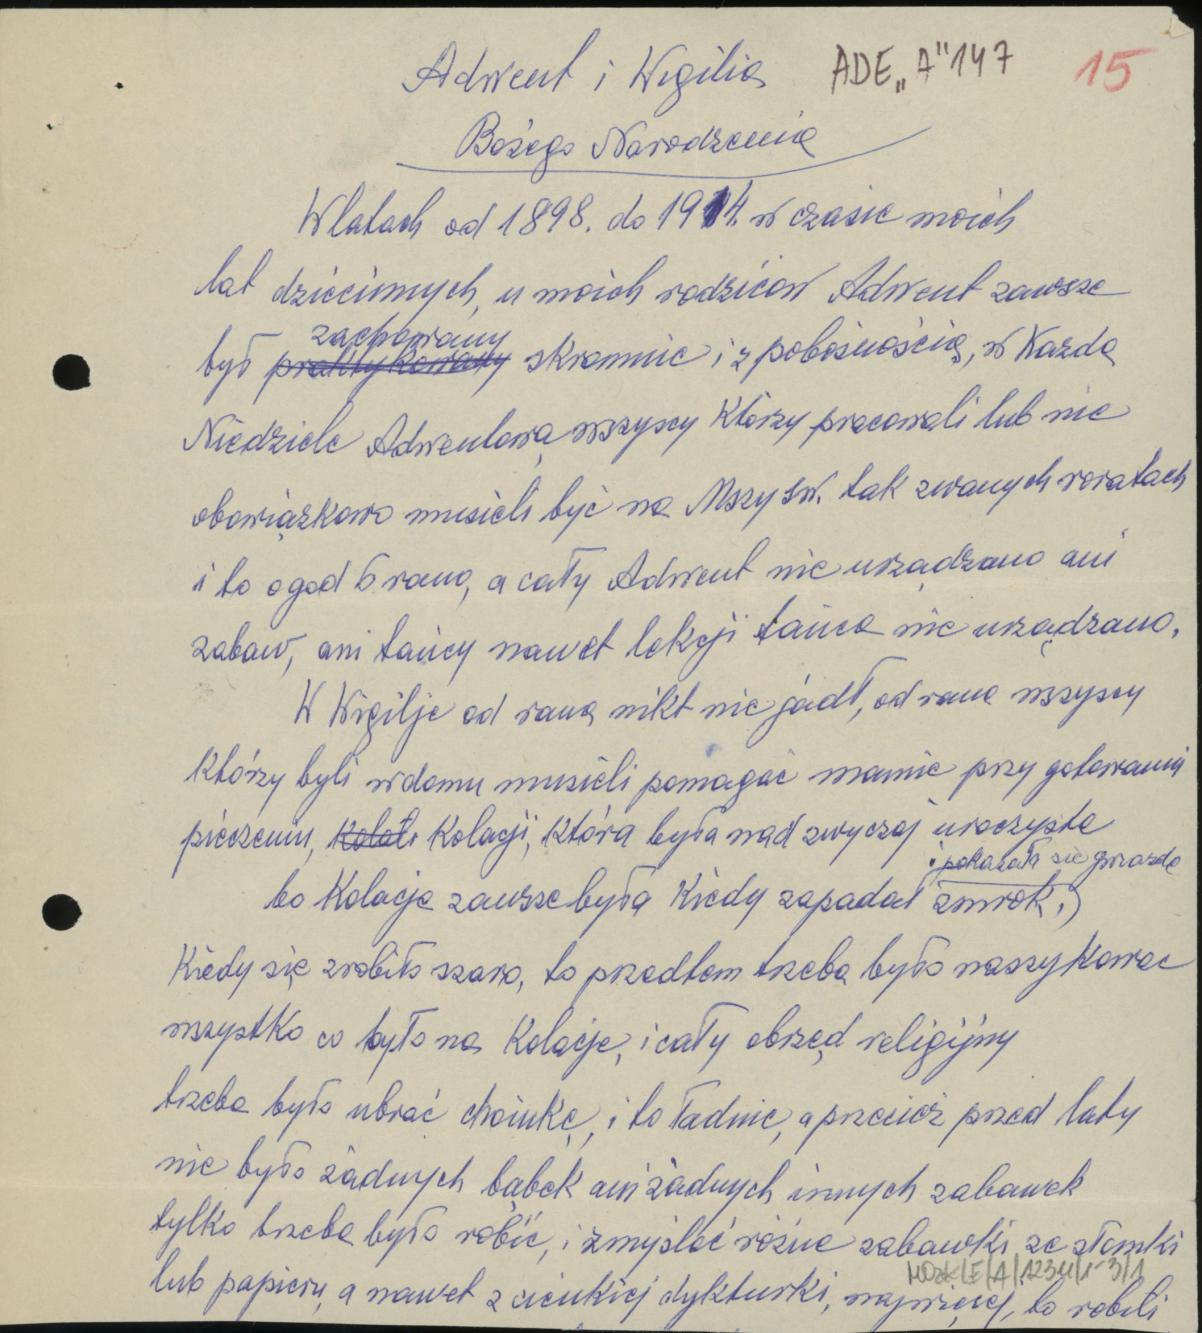 Adwent i Wigilia
ADE „A" 147
15
Bożego Narodzenia
W latach od 1898. do 1914. w czasie moich
lat dziecinnych, u moich rodziców Adwent zawsze
zachowany
był praktykowany skromnie i z pobożnością, w Każdą
Niedziele Adwentową wszyscy Którzy pracowali lub nie
obowiązkowo musieli być na Mszy św. tak zwanych roratach
i to o god 6 rano, a cały Adwent nie urządzano ani
zabaw, ani tańcy nawet lekcji tańca nie urządzano.
W Wigilje od rana nikt nie jadł, od rana wszyscy
Którzy byli w domu musieli pomagać mamie przy gotowaniu
pieczeniu, Kolac Kolacji, Która była nad zwyczaj uroczysta
i pokazała sie gwiazda
bo Kolacja zawsze była Kiedy zapadał zmrok,
Kiedy się zrobiło szaro, to przedtem trzeba było naszykowac
wszystko co było na Kolacje, i cały obrzęd religijny
trzeba było ubrać choinkę, i to ładnie, a przecież przed laty
nie było żadnych babek ani żadnych innych zabawek
tylko trzeba było robić, i zmyśleć różne zabawki ze słomki
lub papieru, a nawet z cienkiej dykturki, najwięcej, to robili